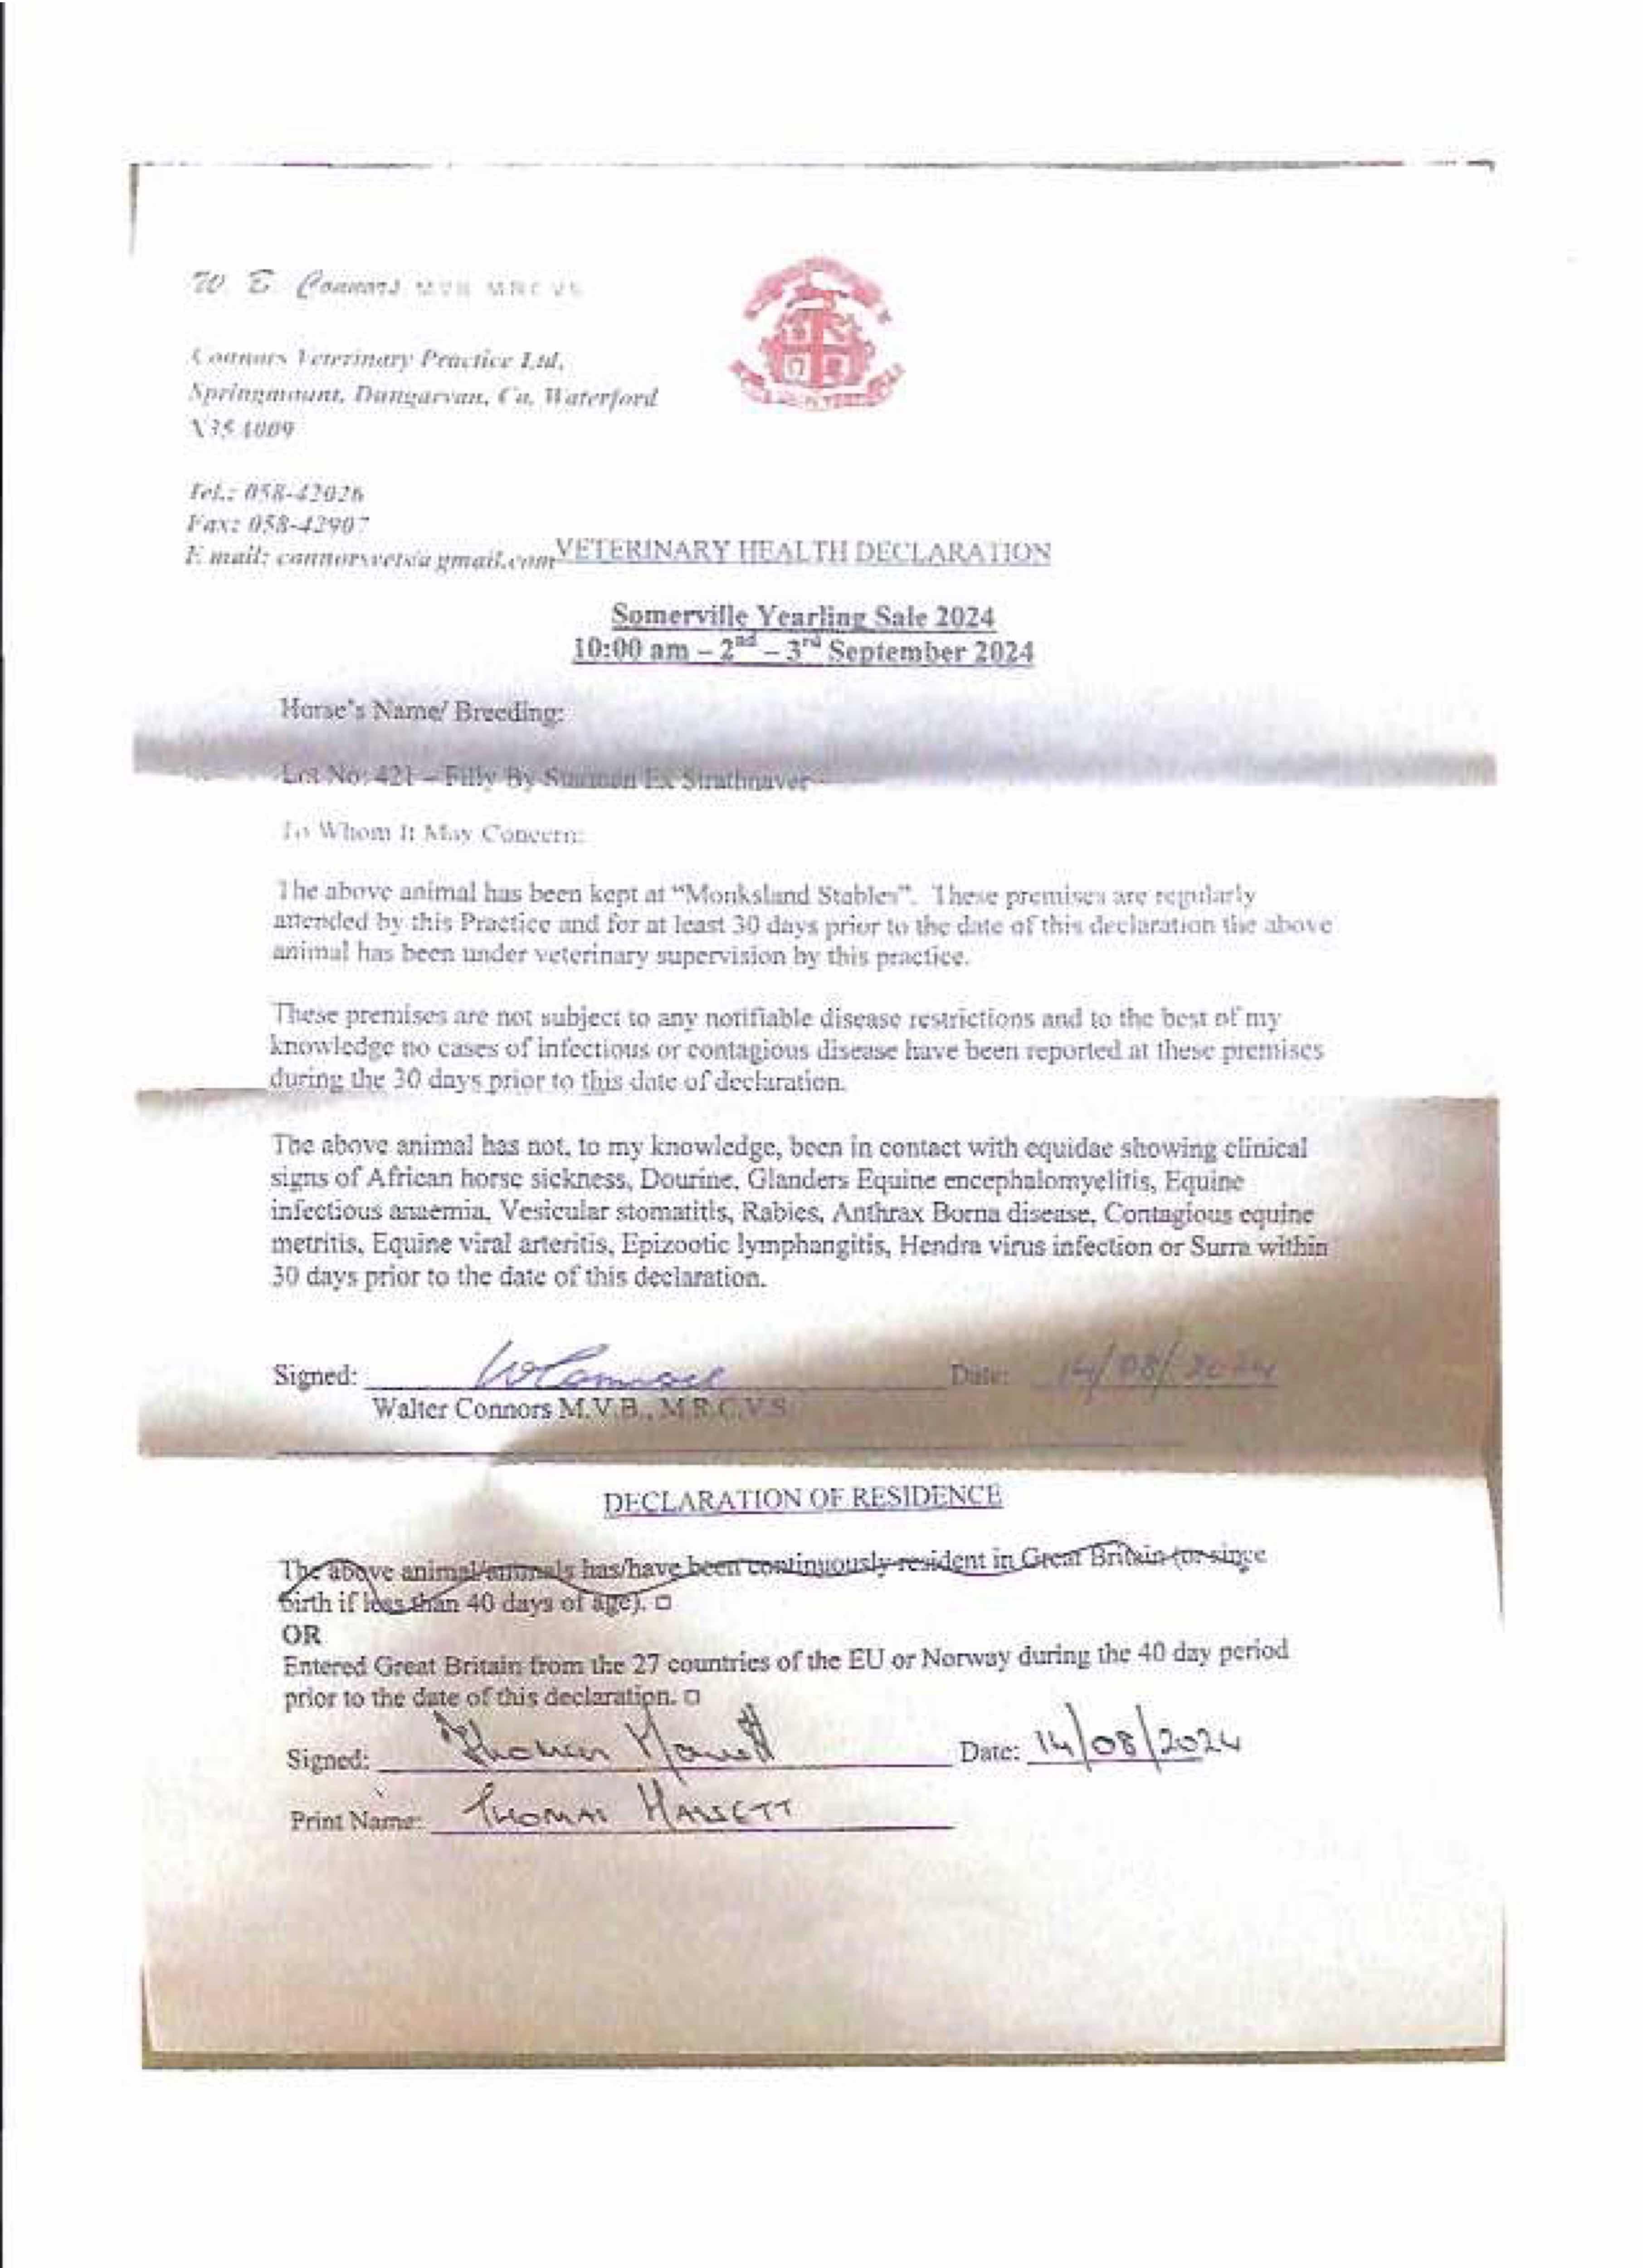 W B Connors MVB MRCVS
Connors Veterinary Practice Ltd,
Springmount, Dungarvan, Co. Waterford
Tel.: 058-42026
Fax: 058-42907
E mail: connorsvets@gmail.com
VETERINARY HEALTH DECLARATION
Somerville Yearling Sale 2024
10:00 am – 2nd – 3rd September 2024
Horse's Name/ Breeding:
Lot No: 421 – Filly By Starman Ex Strathnaver
To Whom It May Concern:
The above animal has been kept at "Monksland Stables". These premises are regularly
attended by this Practice and for at least 30 days prior to the date of this declaration the above
animal has been under veterinary supervision by this practice.
These premises are not subject to any notifiable disease restrictions and to the best of my
knowledge no cases of infectious or contagious disease have been reported at these premises
during the 30 days prior to this date of declaration.
The above animal has not, to my knowledge, been in contact with equidae showing clinical
signs of African horse sickness, Dourine, Glanders Equine encephalomyelitis, Equine
infectious anaemia, Vesicular stomatitis, Rabies, Anthrax Borna disease, Contagious equine
metritis, Equine viral arteritis, Epizootic lymphangitis, Hendra virus infection or Surra within
30 days prior to the date of this declaration.
Signed: WConnors Date: 14/08/2024
Walter Connors M.V.B., M.R.C.V.S.
DECLARATION OF RESIDENCE
The above animal/animals has/have been continuously resident in Great Britain (or since
birth if less than 40 days of age). □
OR
Entered Great Britain from the 27 countries of the EU or Norway during the 40 day period
prior to the date of this declaration. □
Signed: Thomas Date: 14/08/2024
Print Name: THOMAS